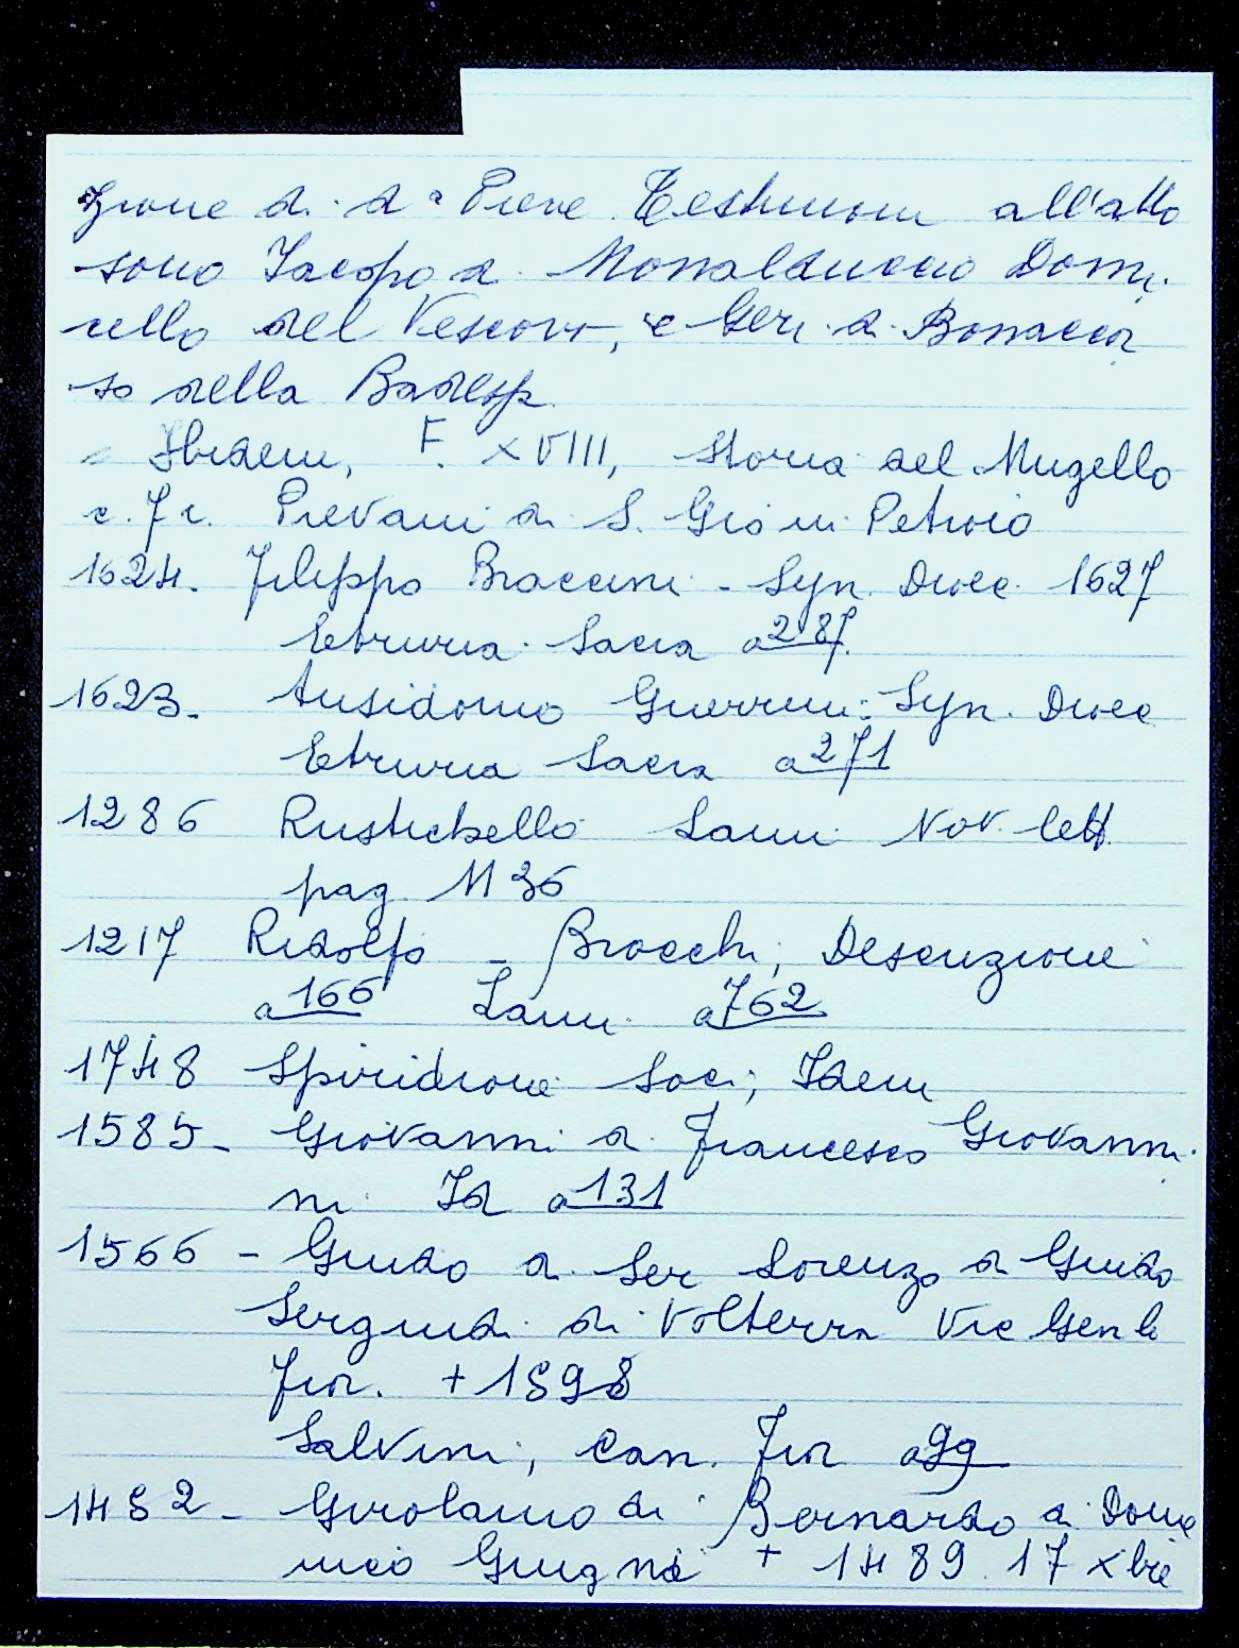 zione di d.ª Pieve Testimoni all'atto
sono Iacopo di Monalduccio Domi-
cello del Vescovo, e Geri di Bonaccor
so della Badessa
= Ibidem, F. XVIII, Storia del Mugello
c. 7 r. Pievani di S. Gio in Petroio
1624. Filippo Braccini - Syn. Dioec. 1627
Etruria Sacra a 287.
1623. Ausidonio Guerrini: Syn. Dioec
Etruria Sacra a 271
1286 Rustichello Lami Nov. lett.
pag. 1136
1217 Ridolfo - Brocchi, Descrizione
a 166 Lami a 762
1748 Spiridione Soci; Idem
1585 - Giovanni di Francesco Giovanni-
ni Id a 131
1566 - Guido di Ser Lorenzo di Guido
Serguidi di Volterra Vic Gen le
Fior. + 1598
Salvini, Can. Fior a 99
1452 - Girolamo di Bernardo di Dome
nico Giugni + 1489 17 Xbre